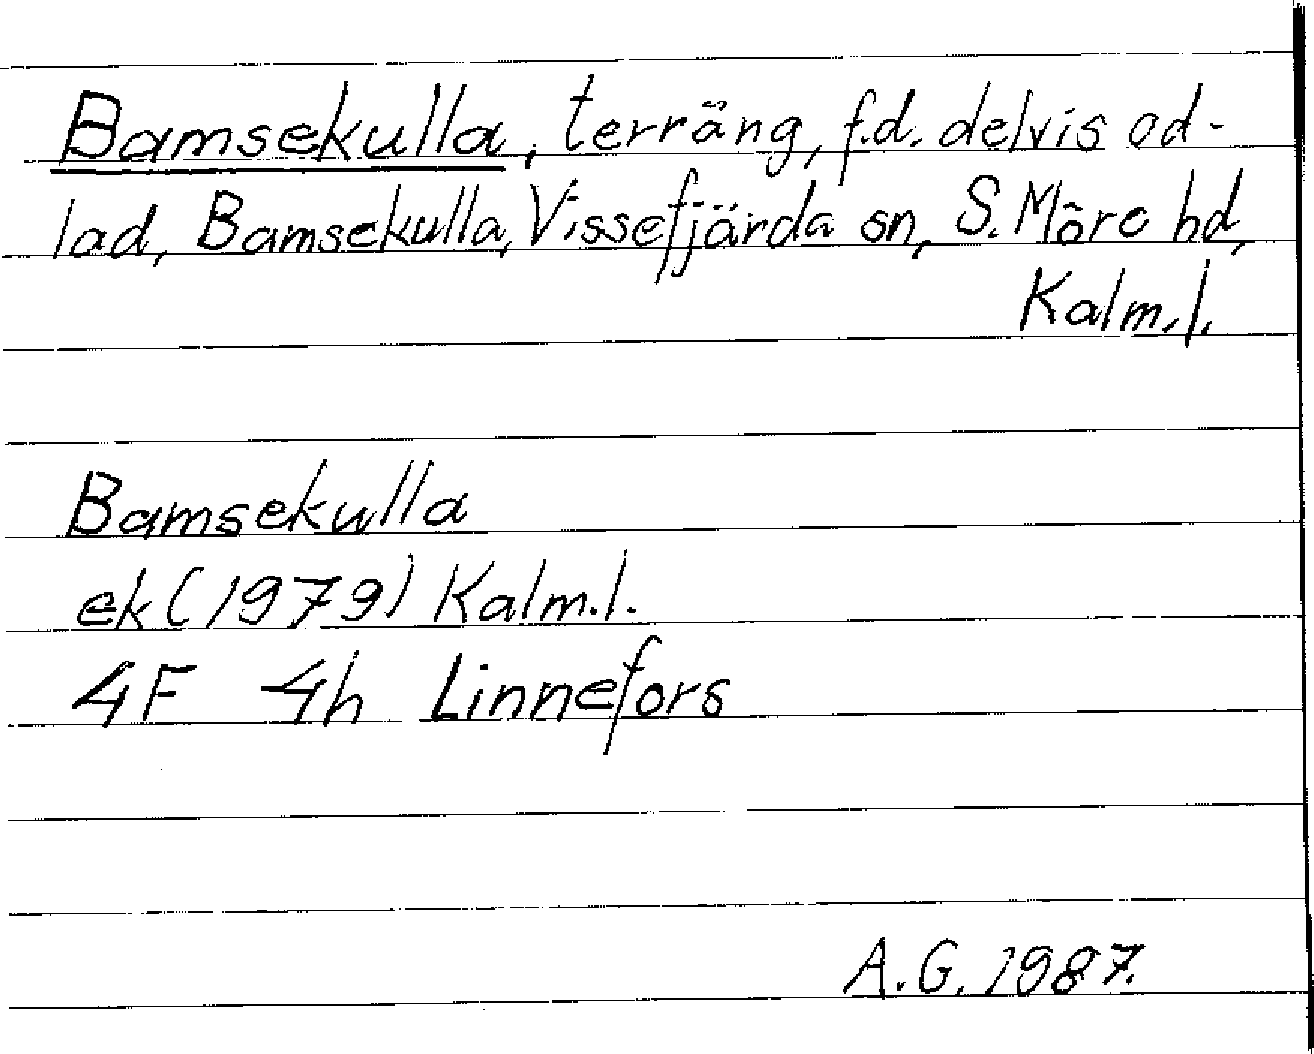 Bamsekulla, terräng, f.d. delvis od-
lad, Bamsekulla, Vissefjärda sn, S. Möre hd,
Kalm.l.
Bamsekulla
ek (1979) Kalm.l.
4F 4h Linnefors
A.G. 1987.